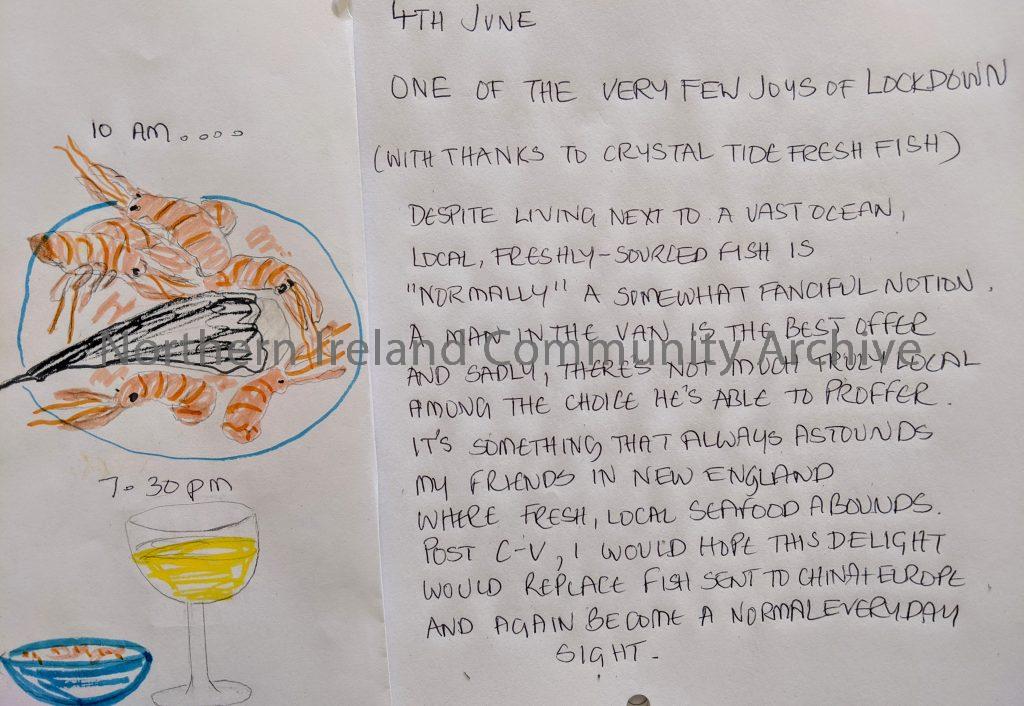 10 AM....
7.30pm
4TH JUNE
ONE OF THE VERY FEW JOYS OF LOCKDOWN
(WITH THANKS TO CRYSTAL TIDE FRESH FISH)
DESPITE LIVING NEXT TO A VAST OCEAN,
LOCAL, FRESHLY-SOURCED FISH IS
"NORMALLY" A SOMEWHAT FANCIFUL NOTION.
A MAN IN THE VAN IS THE BEST OFFER
AND SADLY, THERE'S NOT MUCH TRULY LOCAL
AMONG THE CHOICE HE'S ABLE TO PROFFER.
IT'S SOMETHING THAT ALWAYS ASTOUNDS
MY FRIENDS IN NEW ENGLAND
WHERE FRESH, LOCAL SEAFOOD ABOUNDS.
POST C-V, I WOULD HOPE THIS DELIGHT
WOULD REPLACE FISH SENT TO CHINA+EUROPE
AND AGAIN BECOME A NORMAL EVERYDAY
SIGHT.
Northern Ireland Community Archive